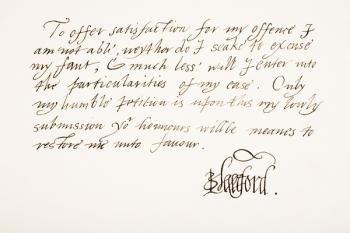 To offer satisfaction for my offence I
am not able', neyther do I seake to excuse
my faut, & much less' will I enter into
the particularities of my case. Only
my humble petition is upon this my lowly
submission yor honnours wilbe meanes to
restore me unto favour.